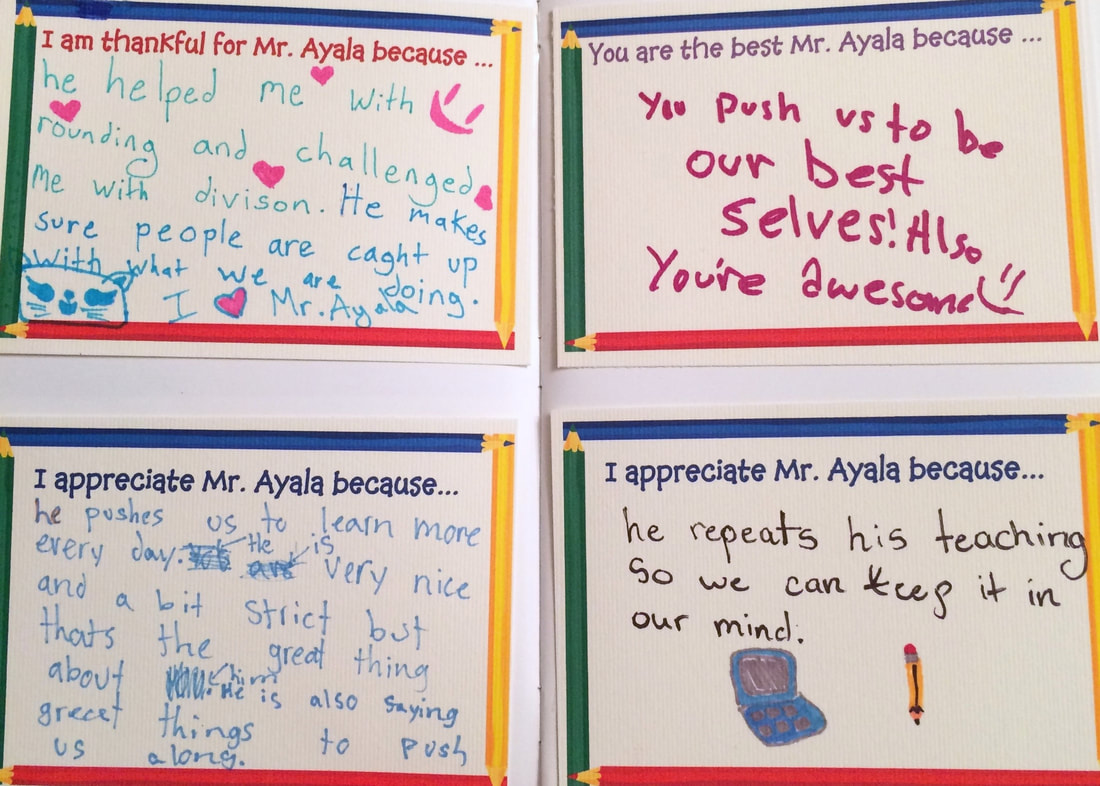 I am thankful for Mr. Ayala because ...
he helped me with
rounding and challenged
me with divison. He makes
sure people are caght up
with what we are doing.
I Mr. Ayala
You are the best Mr. Ayala because ...
You push us to be
our best
selves! Also
You're awesome
I appreciate Mr. Ayala because...
he pushes us to learn more
every day. He is very nice
and a bit strict but
thats the great thing
about him. He is also saying
great things to push
us along.
I appreciate Mr. Ayala because...
he repeats his teaching
so we can keep it in
our mind.